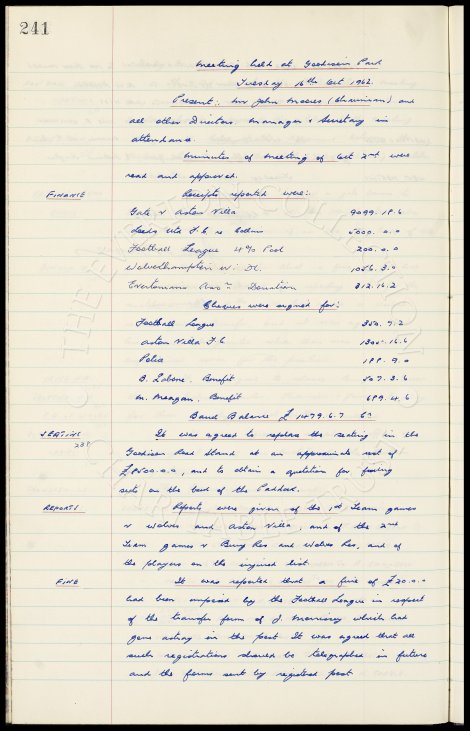 241
Meeting held at Goodison Park
Tuesday 16th Oct 1962.
Present: Mr John Moores (Chairman) and
all other Directors. Manager & Secretary in
attendance.
Minutes of meeting of Oct 2nd were
read and approved.
FINANCE Receipts reported were:
Gate v Aston Villa 9099.18.6
Leeds Utd F.C. re Collins 5000.0.0
Football League 4% Pool 200.0.0
Wolverhampton W. F.C. 1056.3.0
Evertonians Assn. Donation 312.16.2
Cheques were signed for:
Football League 350.9.2
Aston Villa F.C 1300.16.6
Police 188.9.0
B. Labone. Benefit 507.3.6
M. Meagan. Benefit 689.4.6
Bank Balance £ 1479.6.7
SEATING It was agreed to replace the seating in the
238 Goodison Road Stand at an approximate cost of
£8500.0.0, and to obtain a quotation for fixing
seats on the back of the Paddock.
REPORTS Reports were given of the 1st Team games
v Wolves and Aston Villa, and of the 2nd
Team games v Bury Res and Wolves Res, and of
the players on the injured list.
FINE It was reported that a fine of £20.0.0
had been imposed by the Football League in respect
of the transfer form of J. Morrissey which had
gone astray in the post. It was agreed that all
such registrations should be telegraphed in future
and the forms sent by registered post.
THE EVERTON COLLECTION